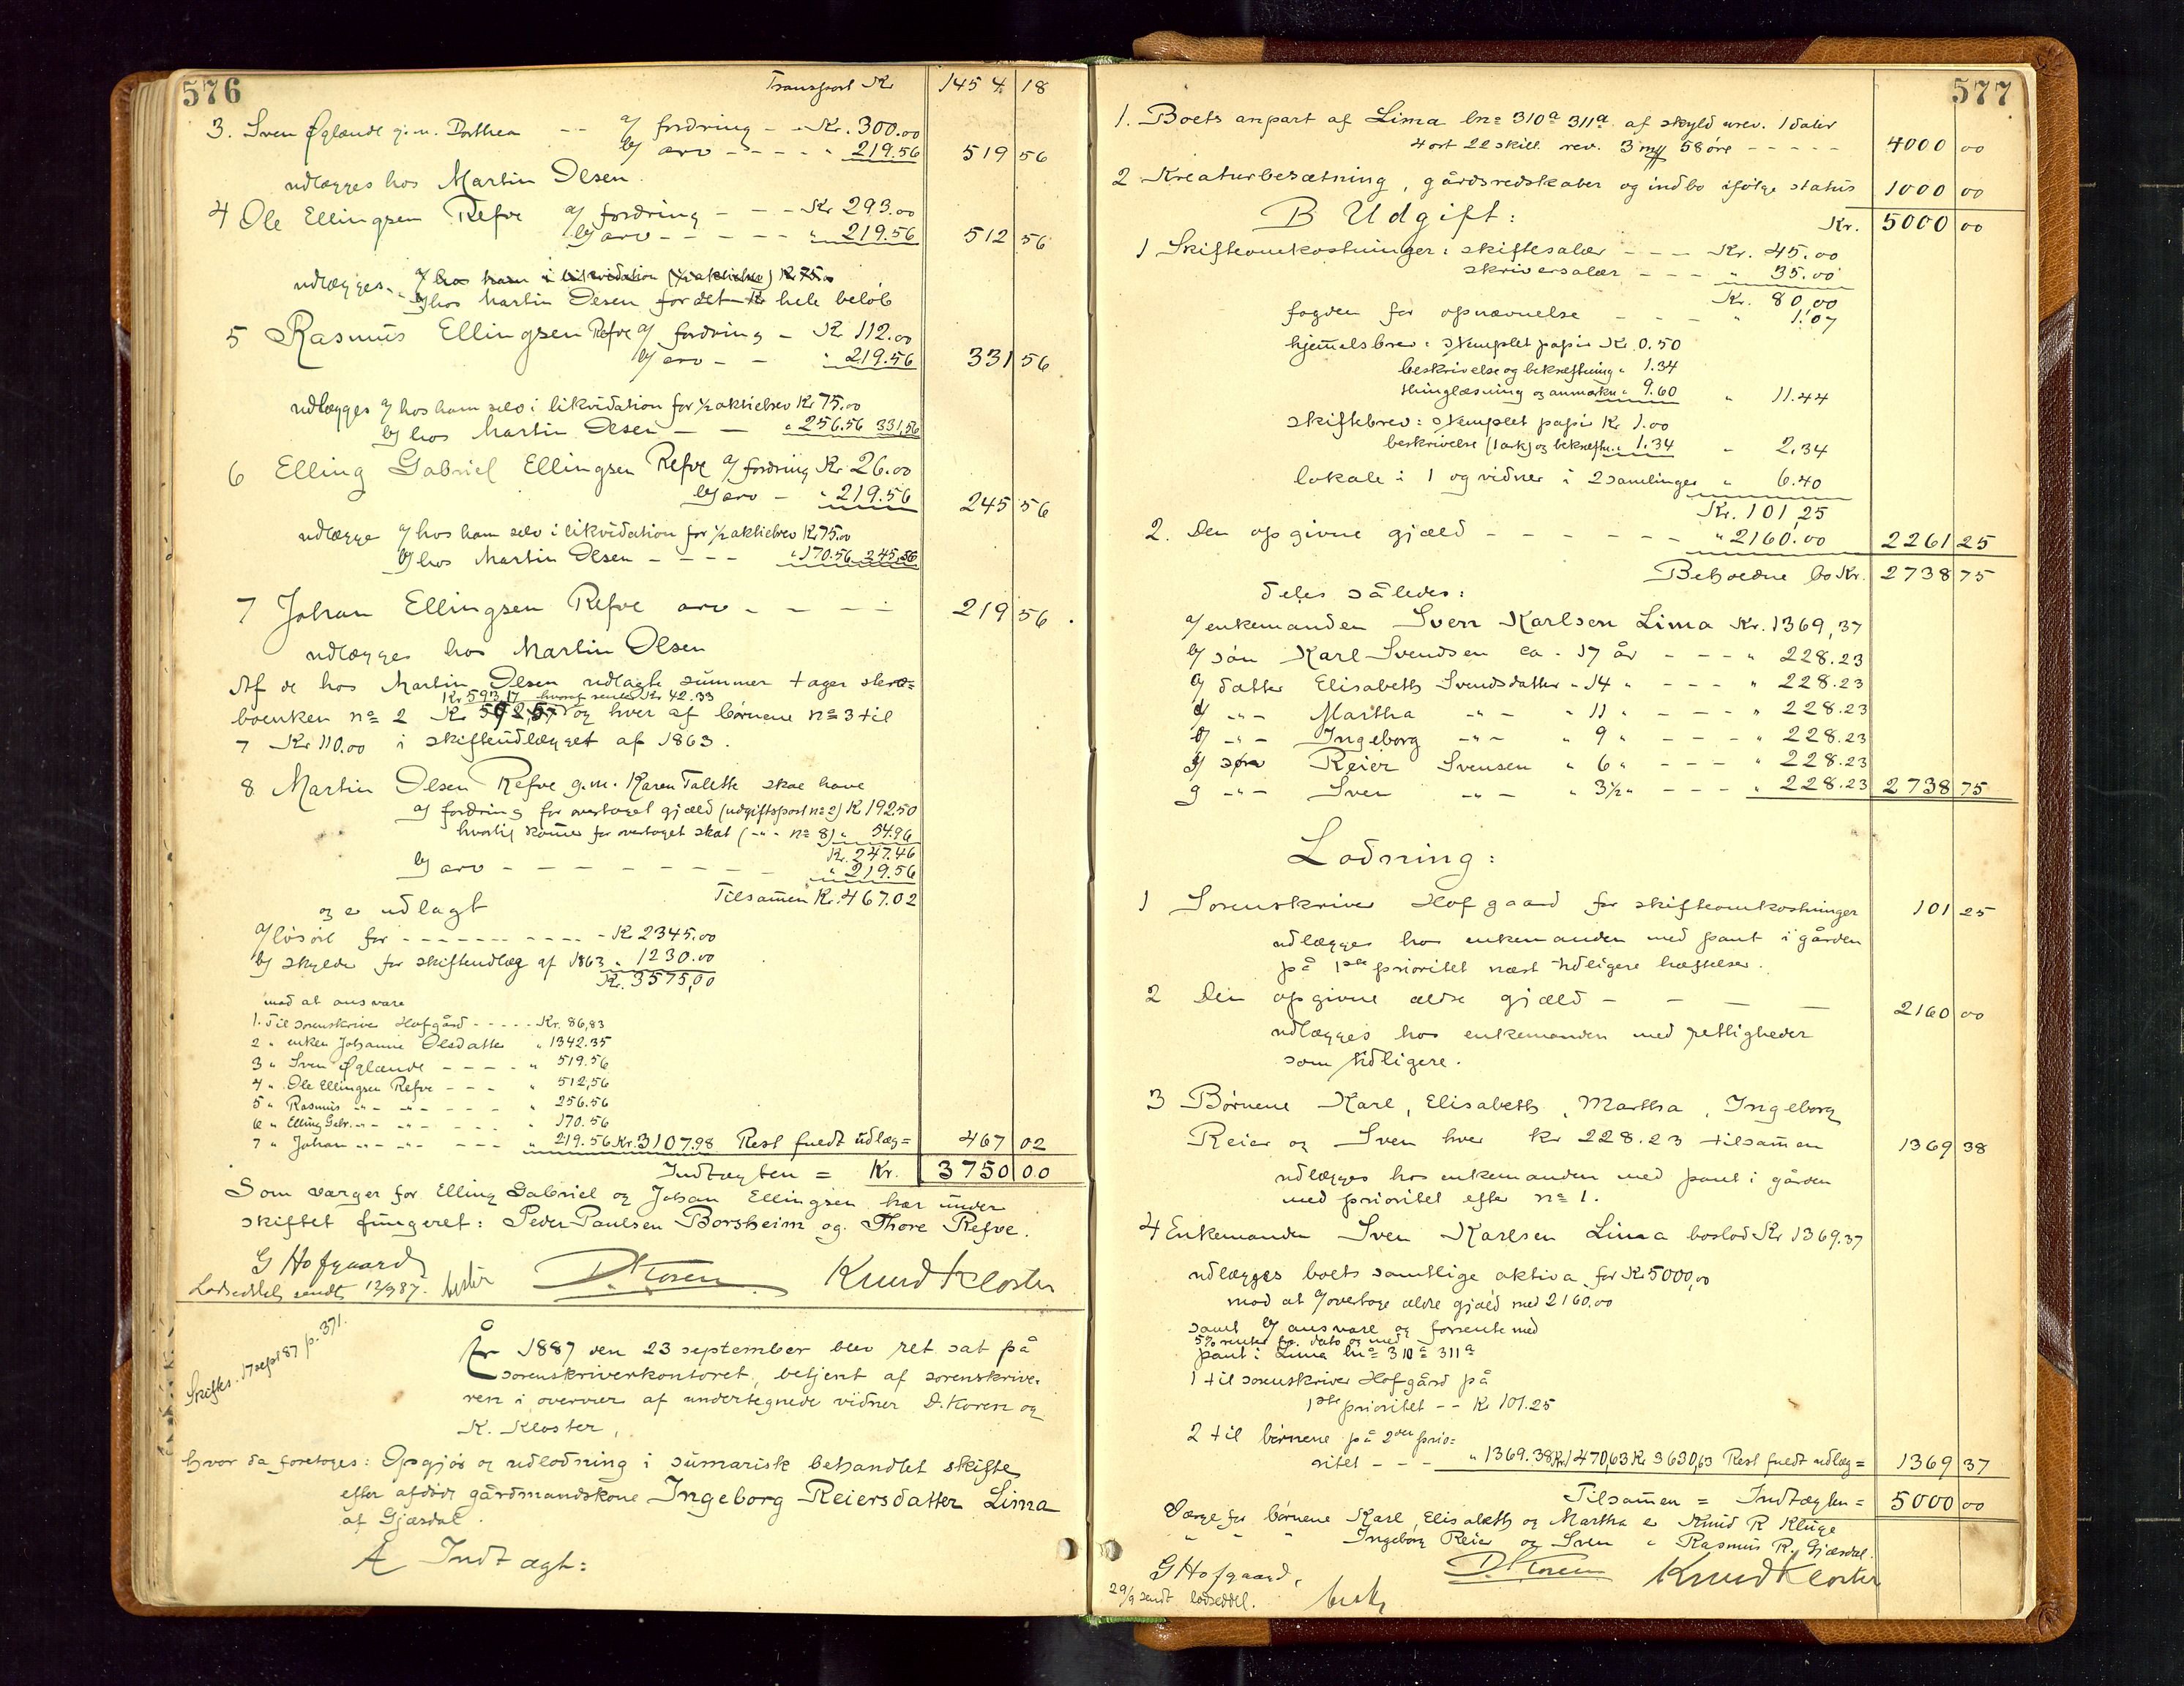 576
Transport Kr 1454 18
3. Sven Øglænde g. m. Dorthea -- a/ fordring - - Kr. 300.00
b/ arv - - - - " 219.56 519 56
udlægges hos Martin Olsen.
4 Ole Ellingsen Refve a/ fordring - - - Kr 293.00
b/ arv - - - - - " 219.56 512 56
udlægges - a/ hos ham i likvidation (½ aktiebrev) Kr 75.00
b/ hos Martin Olsen for det Kr hele beløb
5 Rasmus Ellingsen Refve a/ fordring - Kr 112.00
b/ arv - - " 219.56 331 56
udlægges a/ hos ham selv i likvidation for ½ aktiebrev Kr 75.00
b/ hos Martin Olsen - - " 256.56 331,56
6 Elling Gabriel Ellingsen Refve a/ fordring Kr 26.00
b/ arv - " 219.56 245 56
udlægge a/ hos ham selv i likvidation for ½ aktiebrev Kr 75.00
b/ hos Martin Olsen - - - - " 170.56 245,56
7 Johan Ellingsen Refve arv - - - - 219 56.
udlægges hos Martin Olsen
Af de hos Martin Olsen udlagte summer tager sterv=
Kr 593,17 hvoraf renter Kr 42.33
boenken no 2 Kr 592,57 og hver af børnene no 3 til
7 Kr 110.00 i skifteudlægget af 1863.
8 Martin Olsen Refve g. m. Karen Talette skal have
a/ fordring for overtaget gjæld (udgiftspost no 2) Kr 192.50
hvortil kommer for overtaget skat (-"- no 8) " 54.96
Kr. 247.46
b/ arv - - - - - - - - " 219.56
Tilsammen Kr. 467.02
og er udlagt
a/ løsøre for - - - - - - - - - - - Kr 2345.00
b/ skylder for skifteudlæg af 1863 " 1230.00
Kr. 3575,00
mod at ansvare
1. til sorenskriver Hofgård - - - - - Kr. 86,83
2 " enken Johanne Olsdatter " 1342.35
3 " Sven Øglænde - - - - " 519.56
4 " Ole Ellingsen Refve - - - " 512,56
5 " Rasmus -"- -"- - - - " 256.56
6 " Elling Gabr. -"- -"- - - - " 170.56
7 " Johan -"- -"- - - - " 219.56 Kr. 3107.98 Rest fuldt udlæg = 467 02
Indtægten = Kr. 3750 00
Som værger for Elling Gabriel og Johan Ellingsen har under
skiftet fungeret: Peder Paulsen Borsheim og Thore Refve.
G Hofgaard D. Koren Knud Kloster
Lodseddel sendt 12/9 87.
Skifters. 17 sept 87 p. 371.
År 1887 den 23 september blev ret sat på
sorenskriverkontoret, betjent af sorenskrive-
ren i overvær af undertegnede vidner D. Koren og
K. Kloster,
hvor da foretoges: Opgjør og udlodning i summarisk behandlet skifte
efter afdøde gårdmandskone Ingeborg Reiersdatter Lima
af Gjæsdal.
A Indtægt:
577
1. Boets anpart af Lima lno 310a 311a af skyld urev. 1 daler
4 ort 22 skill. rev. 3 mk 58 øre - - - - - 4000 00
2 Kreaturbesætning, gårdsredskaber og indbo ifølge status 1000 00
B Udgift: Kr. 5000 00
1 Skifteomkostninger: skiftesalær - - - Kr. 45.00
skriversalær - - - " 35.00
Kr. 80,00
fogden for opnævnelse - - - " 1.07
hjemmelsbrev: stemplet papir Kr. 0.50
beskrivelse og bekræftning " 1.34
thinglæsning og anmærkn " 9.60 " 11.44
skiftebrev: stemplet papir Kr 1.00
beskrivelse (1 ark) og bekræftn. " 1.34 " 2,34
lokale i 1 og vidner i 2 samlinger " 6.40
Kr. 101,25
2. Den opgivne gjæld - - - - - - - " 2160.00 2261 25
Beholdne bo Kr. 2738 75
deles således:
a/ enkemanden Sven Karlsen Lima Kr. 1369,37
b/ søn Karl Svendsen ca. 17 år - - - " 228.23
c/ datter Elisabeth Svendsdatter " 14 " - - - " 228.23
d/ -"- Martha -"- " 11 " - - - " 228.23
e/ -"- Ingeborg -"- " 9 " - - - " 228.23
f/ søn Reier Svensen " 6 " - - - " 228.23
g -"- Sven -"- " 3½ " - - - " 228.23 2738 75
Lodning:
1 Sorenskriver Hofgaard for skifteomkostninger 101 25
udlægges hos enkemanden med pant i gården
på 1ste prioritet næst tidligere hæftelser.
2 Den opgivne ældre gjæld - - - - 2160 00
udlægges hos enkemanden med rettigheder
som tidligere.
3 Børnene Karl, Elisabeth, Martha, Ingeborg
Reier og Sven hver kr 228.23 tilsammen 1369 38
udlægges hos enkemanden med pant i gården
med prioritet efter no 1.
4 Enkemanden Sven Karlsen Lima boslod Kr 1369.37
udlægges boets samtlige aktiva for Kr 5000,00
mod at a/ overtage ældre gjæld med 2160.00
samt b/ ansvare og forrente med
5% renter fra dato og med
pant i Lima lno 310a 311a
1 til sorenskriver Hofgård på
1ste prioritet - - Kr 101.25
2 til børnene på 2den prio=
ritet - - - " 1369.38 Kr 1470,63 Kr 3630,63 Rest fuldt udlæg = 1369 37
Tilsammen = Indtægten = 5000 00
Værge for børnene Karl, Elisabeth og Martha er Knud R Kluge
" " " Ingeborg Reier og Sven " Rasmus R. Gjæsdal.
G Hofgaard, D. Koren Knud Kloster
29/9 sendt lodseddel.